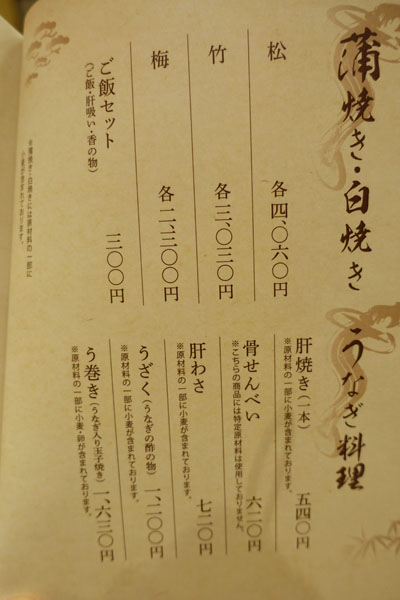 蒲焼き・白焼き
松 各四、〇六〇円
竹 各三、〇三〇円
梅 各二、三〇〇円
ご飯セット 三〇〇円
(ご飯・肝吸い・香の物)
※蒲焼き・白焼きには原材料の一部に
小麦が含まれております。
うなぎ料理
肝焼き(一本) 五四〇円
※原材料の一部に小麦が含まれております。
骨せんべい 六二〇円
※こちらの商品には特定原材料は使用しておりません。
肝わさ 七二〇円
※原材料の一部に小麦が含まれております。
うざく(うなぎの酢の物) 一、二〇〇円
※原材料の一部に小麦が含まれております。
う巻き(うなぎ入り玉子焼き) 一、六三〇円
※原材料の一部に小麦・卵が含まれております。